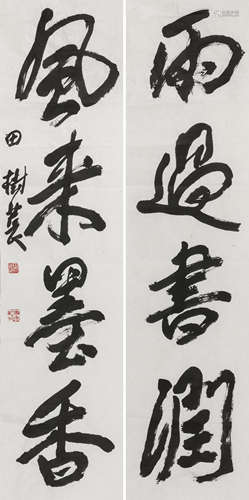 雨過書潤
風来墨香
田樹萇